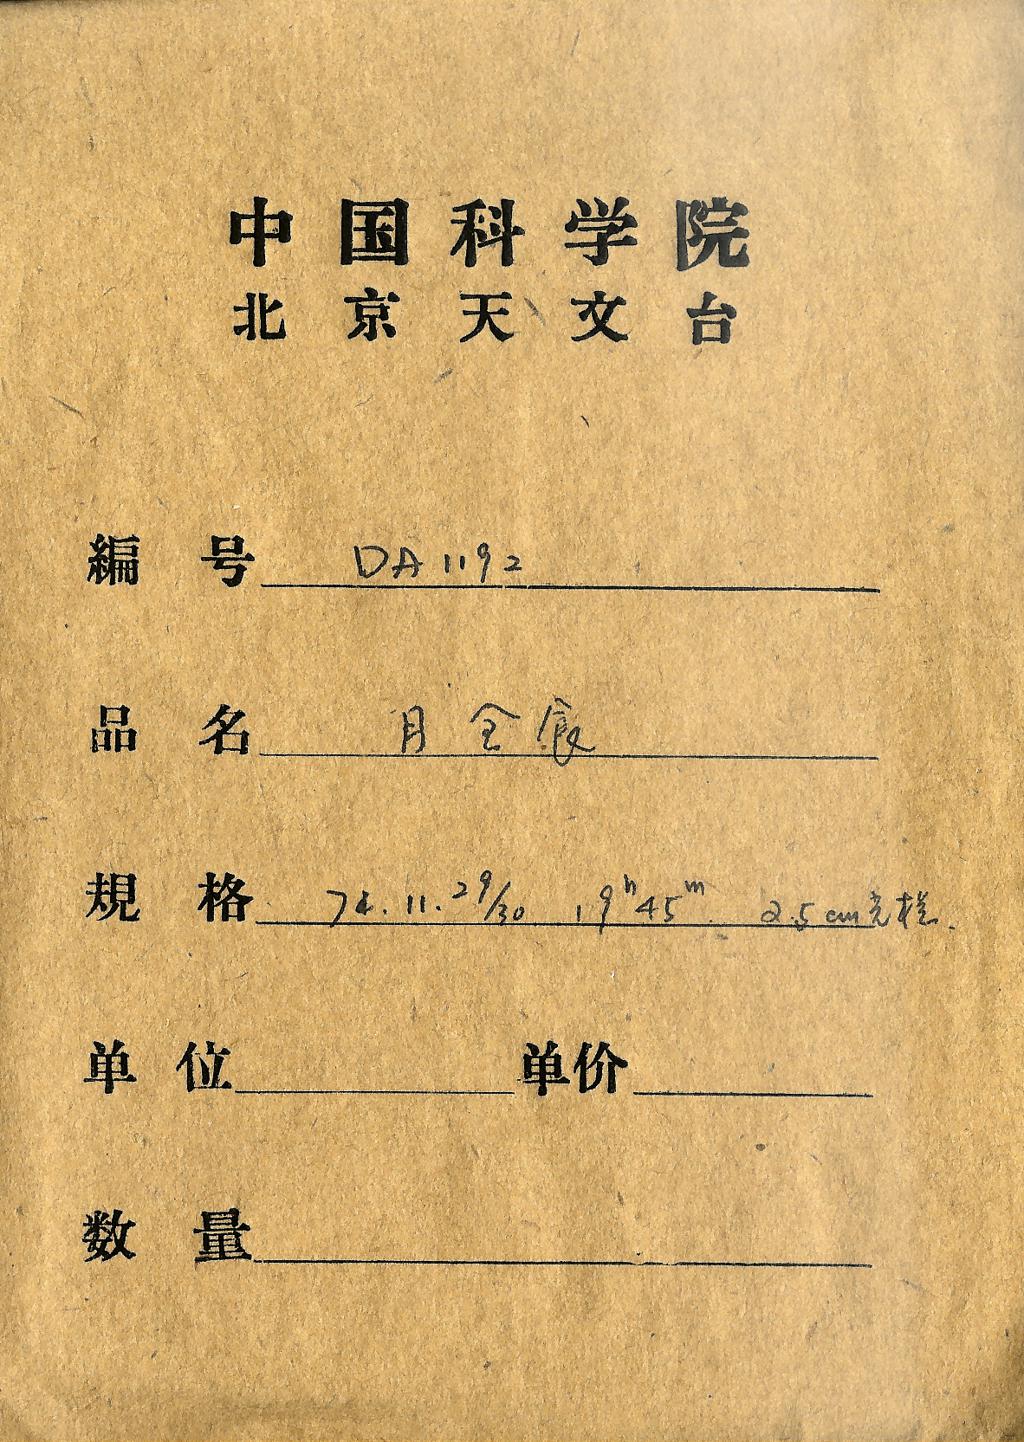 中国科学院
北京天文台
編号 DA1192
品名 月全食
規格 74.11.29/30 19h45m 25cm
单位 单价
数量